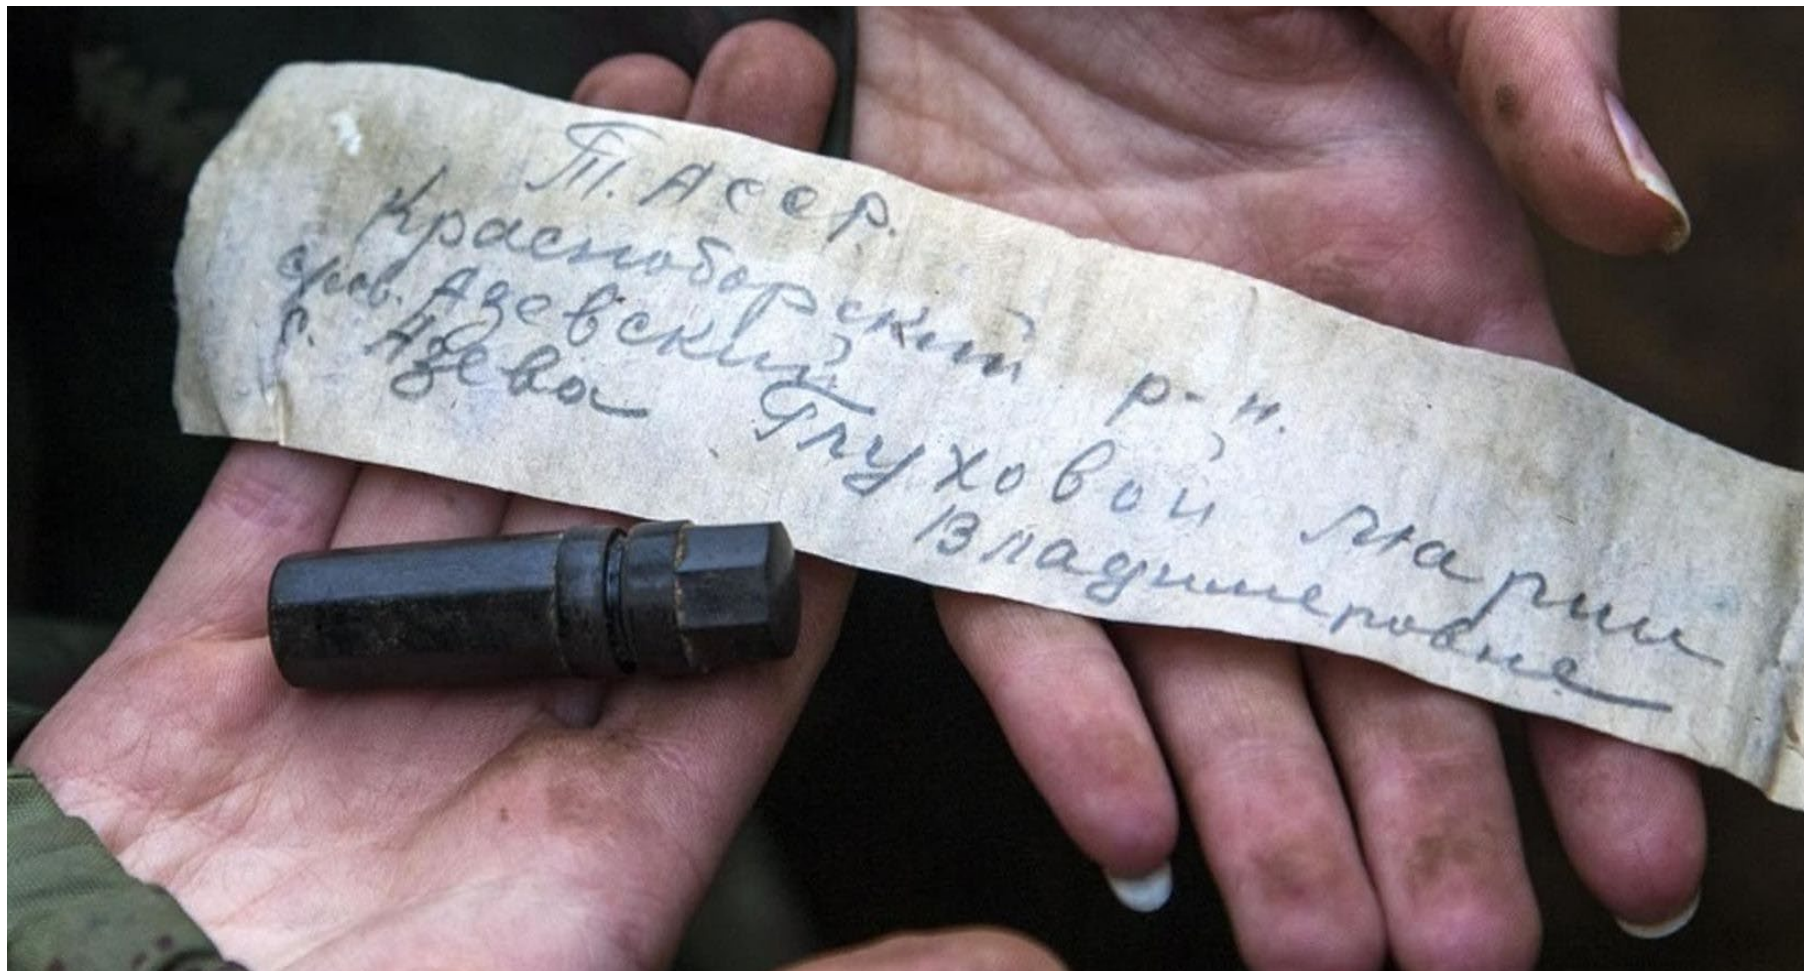 Т. АССР.
Красноборский р-н.
с/сов. Азевский
с. Азево Глуховой Марии
Владимеровне